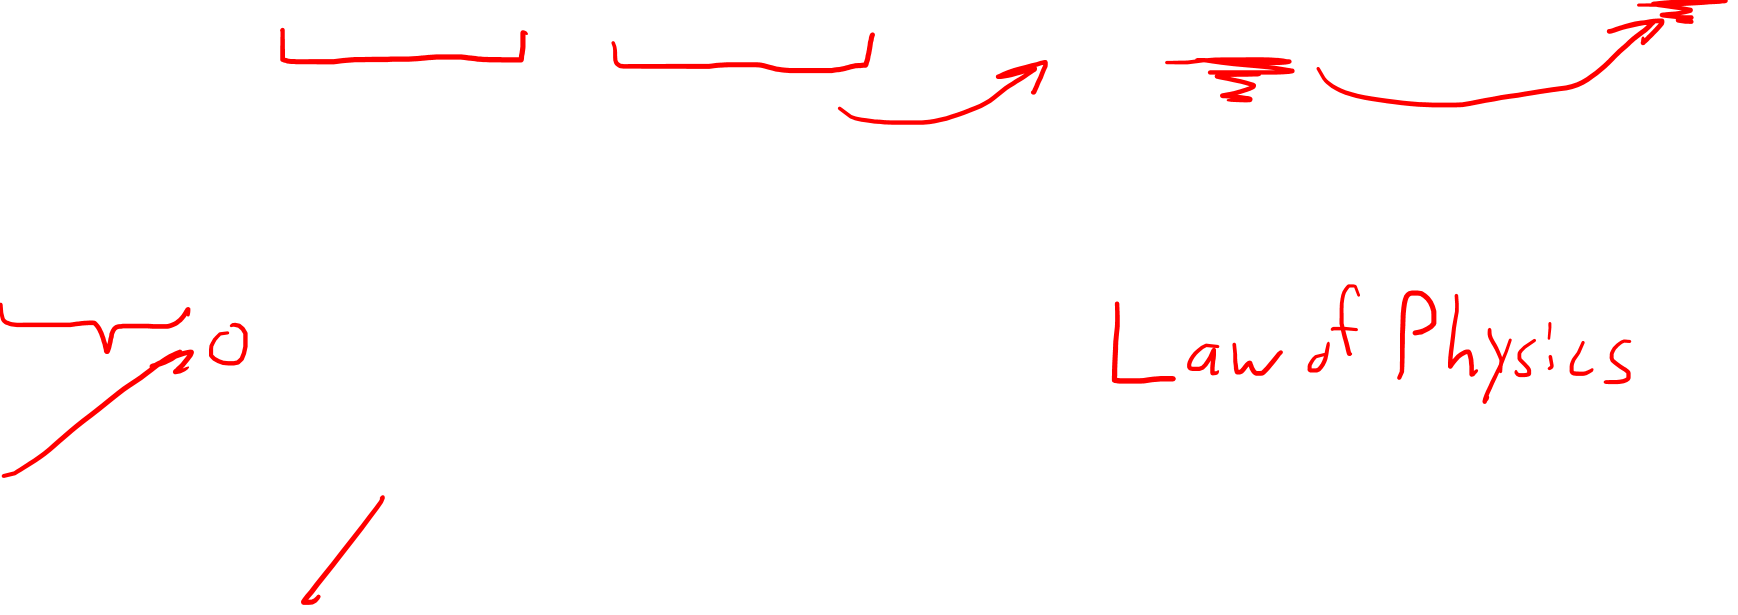 0
Law of Physics